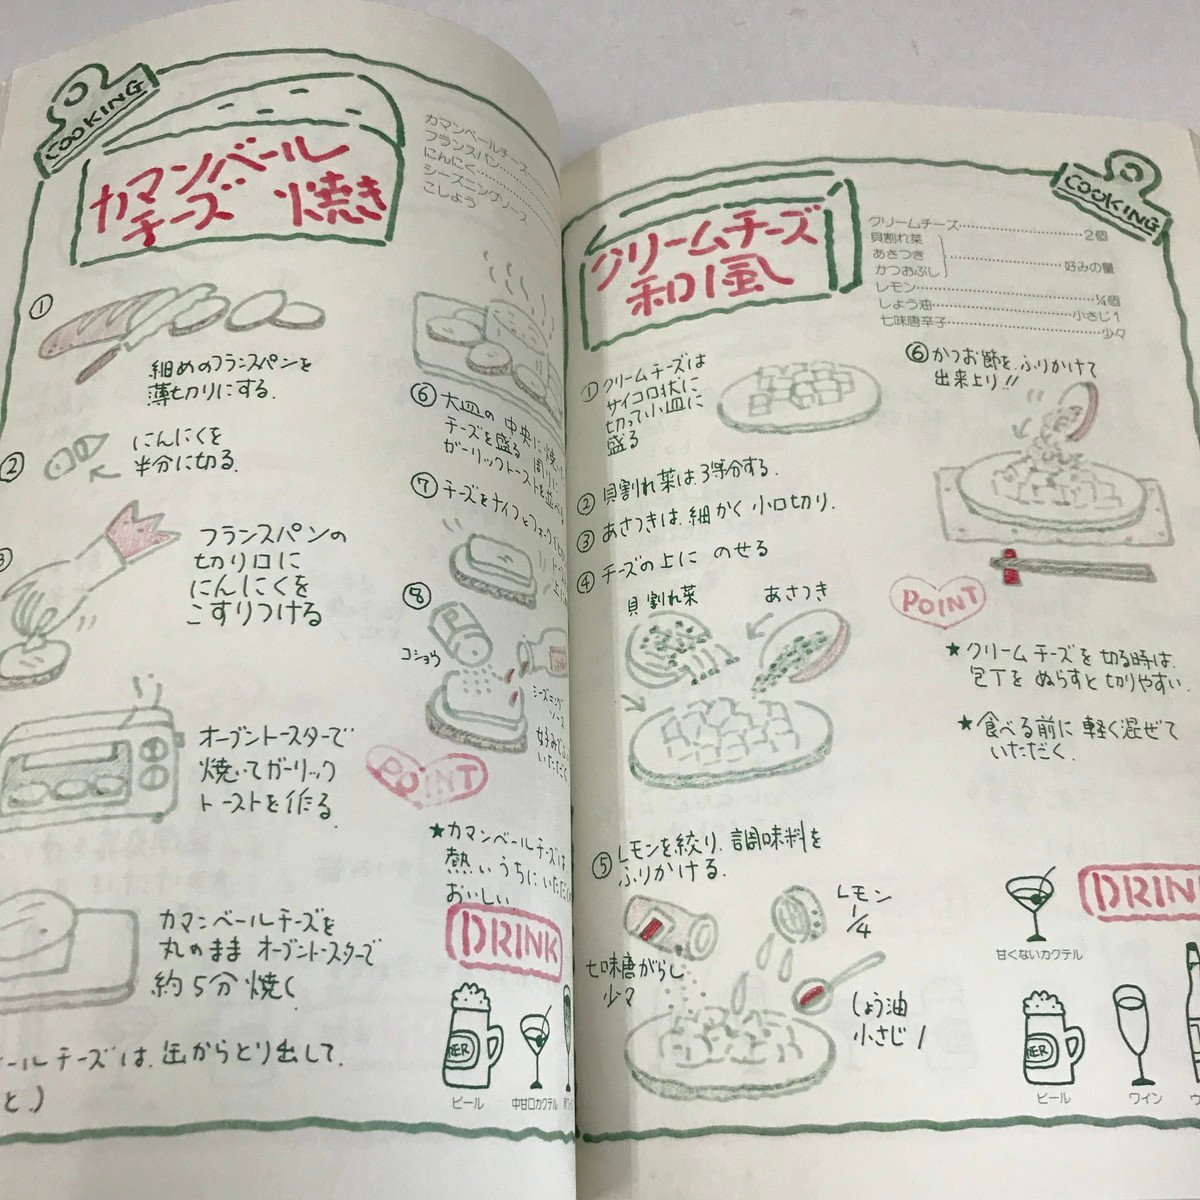 COOKING
カマンベール
チーズ 焼き
カマンベールチーズ
フランスパン
にんにく
シーズニングソース
こしょう
①
細めのフランスパンを
薄切りにする.
②
にんにくを
半分に切る.
フランスパンの
切り口に
にんにくを
こすりつける
オーブントースターで
焼いてガーリック
トーストを作る.
カマンベールチーズを
丸のまま オーブントースターで
約5分焼く
ールチーズは、缶からとり出して.
と.)
⑥ 大皿の 中央に焼い
チーズを盛る 周りに
ガーリックトーストを並べる
⑦ チーズをナイフとフォークで
⑧
コショウ
シーズニング
ソース
好みで
いただく
POINT
★カマンベールチーズは
熱いうちにいただ
おいしい
DRINK
BEER
ビール
中甘口カクテル
COOKING
クリームチーズ
和風
クリームチーズ 2個
貝割れ菜
あさつき
かつおぶし
好みの量
レモン 1/4個
しょう油 小さじ1
七味唐辛子 少々
① クリームチーズは
サイコロ状に
切って小皿に
盛る
② 貝割れ菜は、3等分する.
③ あさつきは、細かく小口切り.
④ チーズの上に のせる
貝割れ菜
あさつき
⑤ レモンを絞り、調味料を
ふりかける.
七味唐がらし
少々
レモン
1/4
しょう油
小さじ1
⑥ かつお節を、ふりかけて
出来上り!!
POINT
★クリームチーズを切る時は、
包丁をぬらすと切りやすい.
★食べる前に軽く混ぜて
いただく.
DRINK
甘くないカクテル
BEER
ビール
ワイン